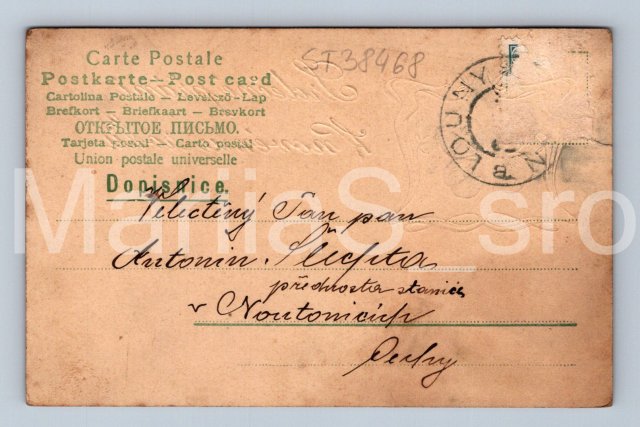 ST38468
Carte Postale
Postkarte—Post card
Cartolina Postale — Levelező-Lap
Brefkort — Briefkaart — Brevkort
ОТКРЫТОЕ ПИСЬМО.
Tarjeta postal — Carto postăl
Union postale universelle
Dopisnice.
LOUNY
Velectěný Pán pan
Antonín
přednosta stanice
v Noutonicích
Čechy
MarijaS_sro